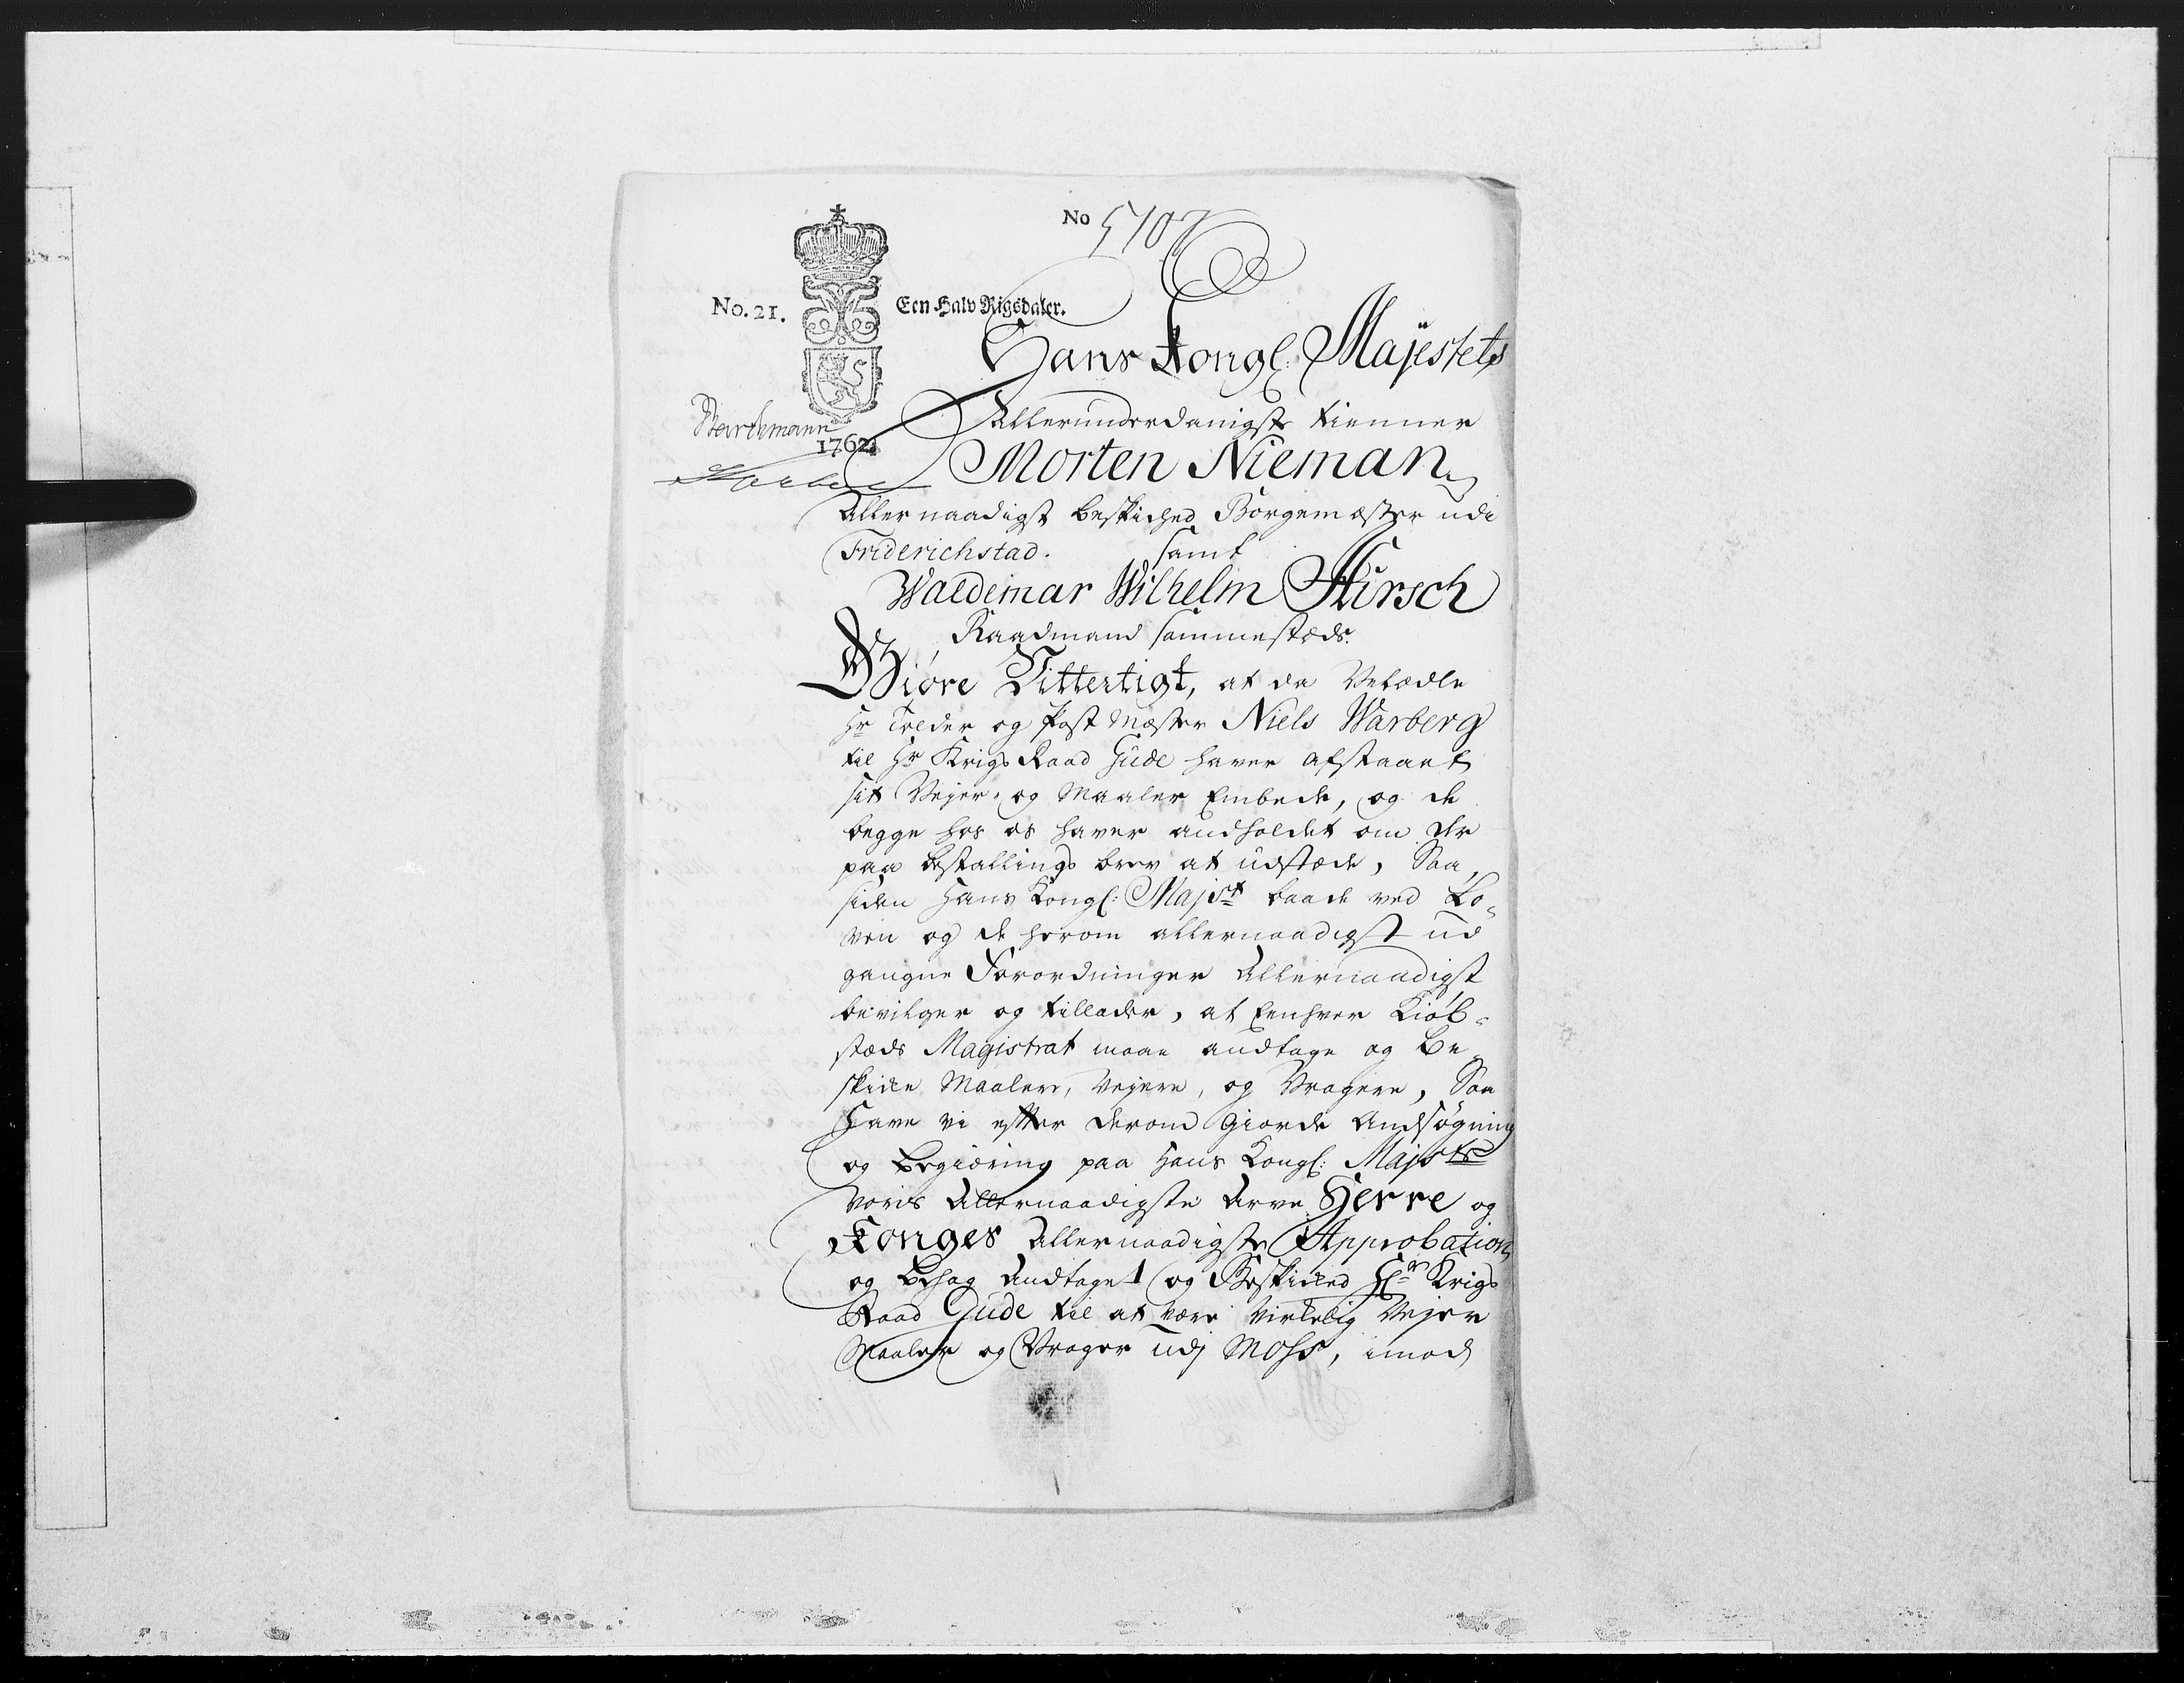 No 5107
No. 21.
Een Halv Rigsdaler.
Hans Kongl: Majestets
Allerunderdanigste tienner
Barthmann
1762
Morten Nieman
Allernaadigst beskicked Borgemester udi
Friderichstad. samt
Waldemar Wilhelm Hirsch
Raadmand sammesteds.
Giöre Vitterligt, at da Velædle
Hr Tolder og Post Mester Niels Warberg
til Hr Krigs Raad Gude haver afstaaet
sit Vejer- og Maaler Embede, og de
begge hos os haver andholdet om der
paa bestallings brev at udstæde, Saa
siden Hans Kongl: Majst baade ved Lo-
ven og de herom allernaadigst ud
gangne Forordninger Allernaadigst
bevilger og tillader, at Eenhver Kiöb-
stæds Magistrat maae andtage og Be-
skicke Maalere, Vejere, og Vragere, Saa
Have vi efter derom giorde Andsögning
og begiering paa Hans Kongl: Majsts
voris Allernaadigste Arve Herre og
Konges Allernaadigste Approbation
og behag Andtaget og Beskicked Hr Krigs
Raad Gude til at være virkelig Vejer
Maaler og Vrager udj Moss, imod